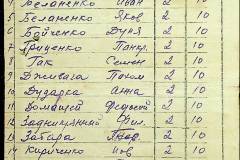 4 Беланенко Иван 2 10
5 Беланенко Яков 2 10
6 Бойченко Дуня 2 10
7 Гриценко Панкр. 2 10
8 Гак Семен 2 10
9 Дживага Потом 2 10
10 Дударка Анна 2 10
11 Домащей Федосий 2 10
12 Задниприный Фил. 2 10
13 Забара Яков 2 10
14 Кириченко Иов 2 10